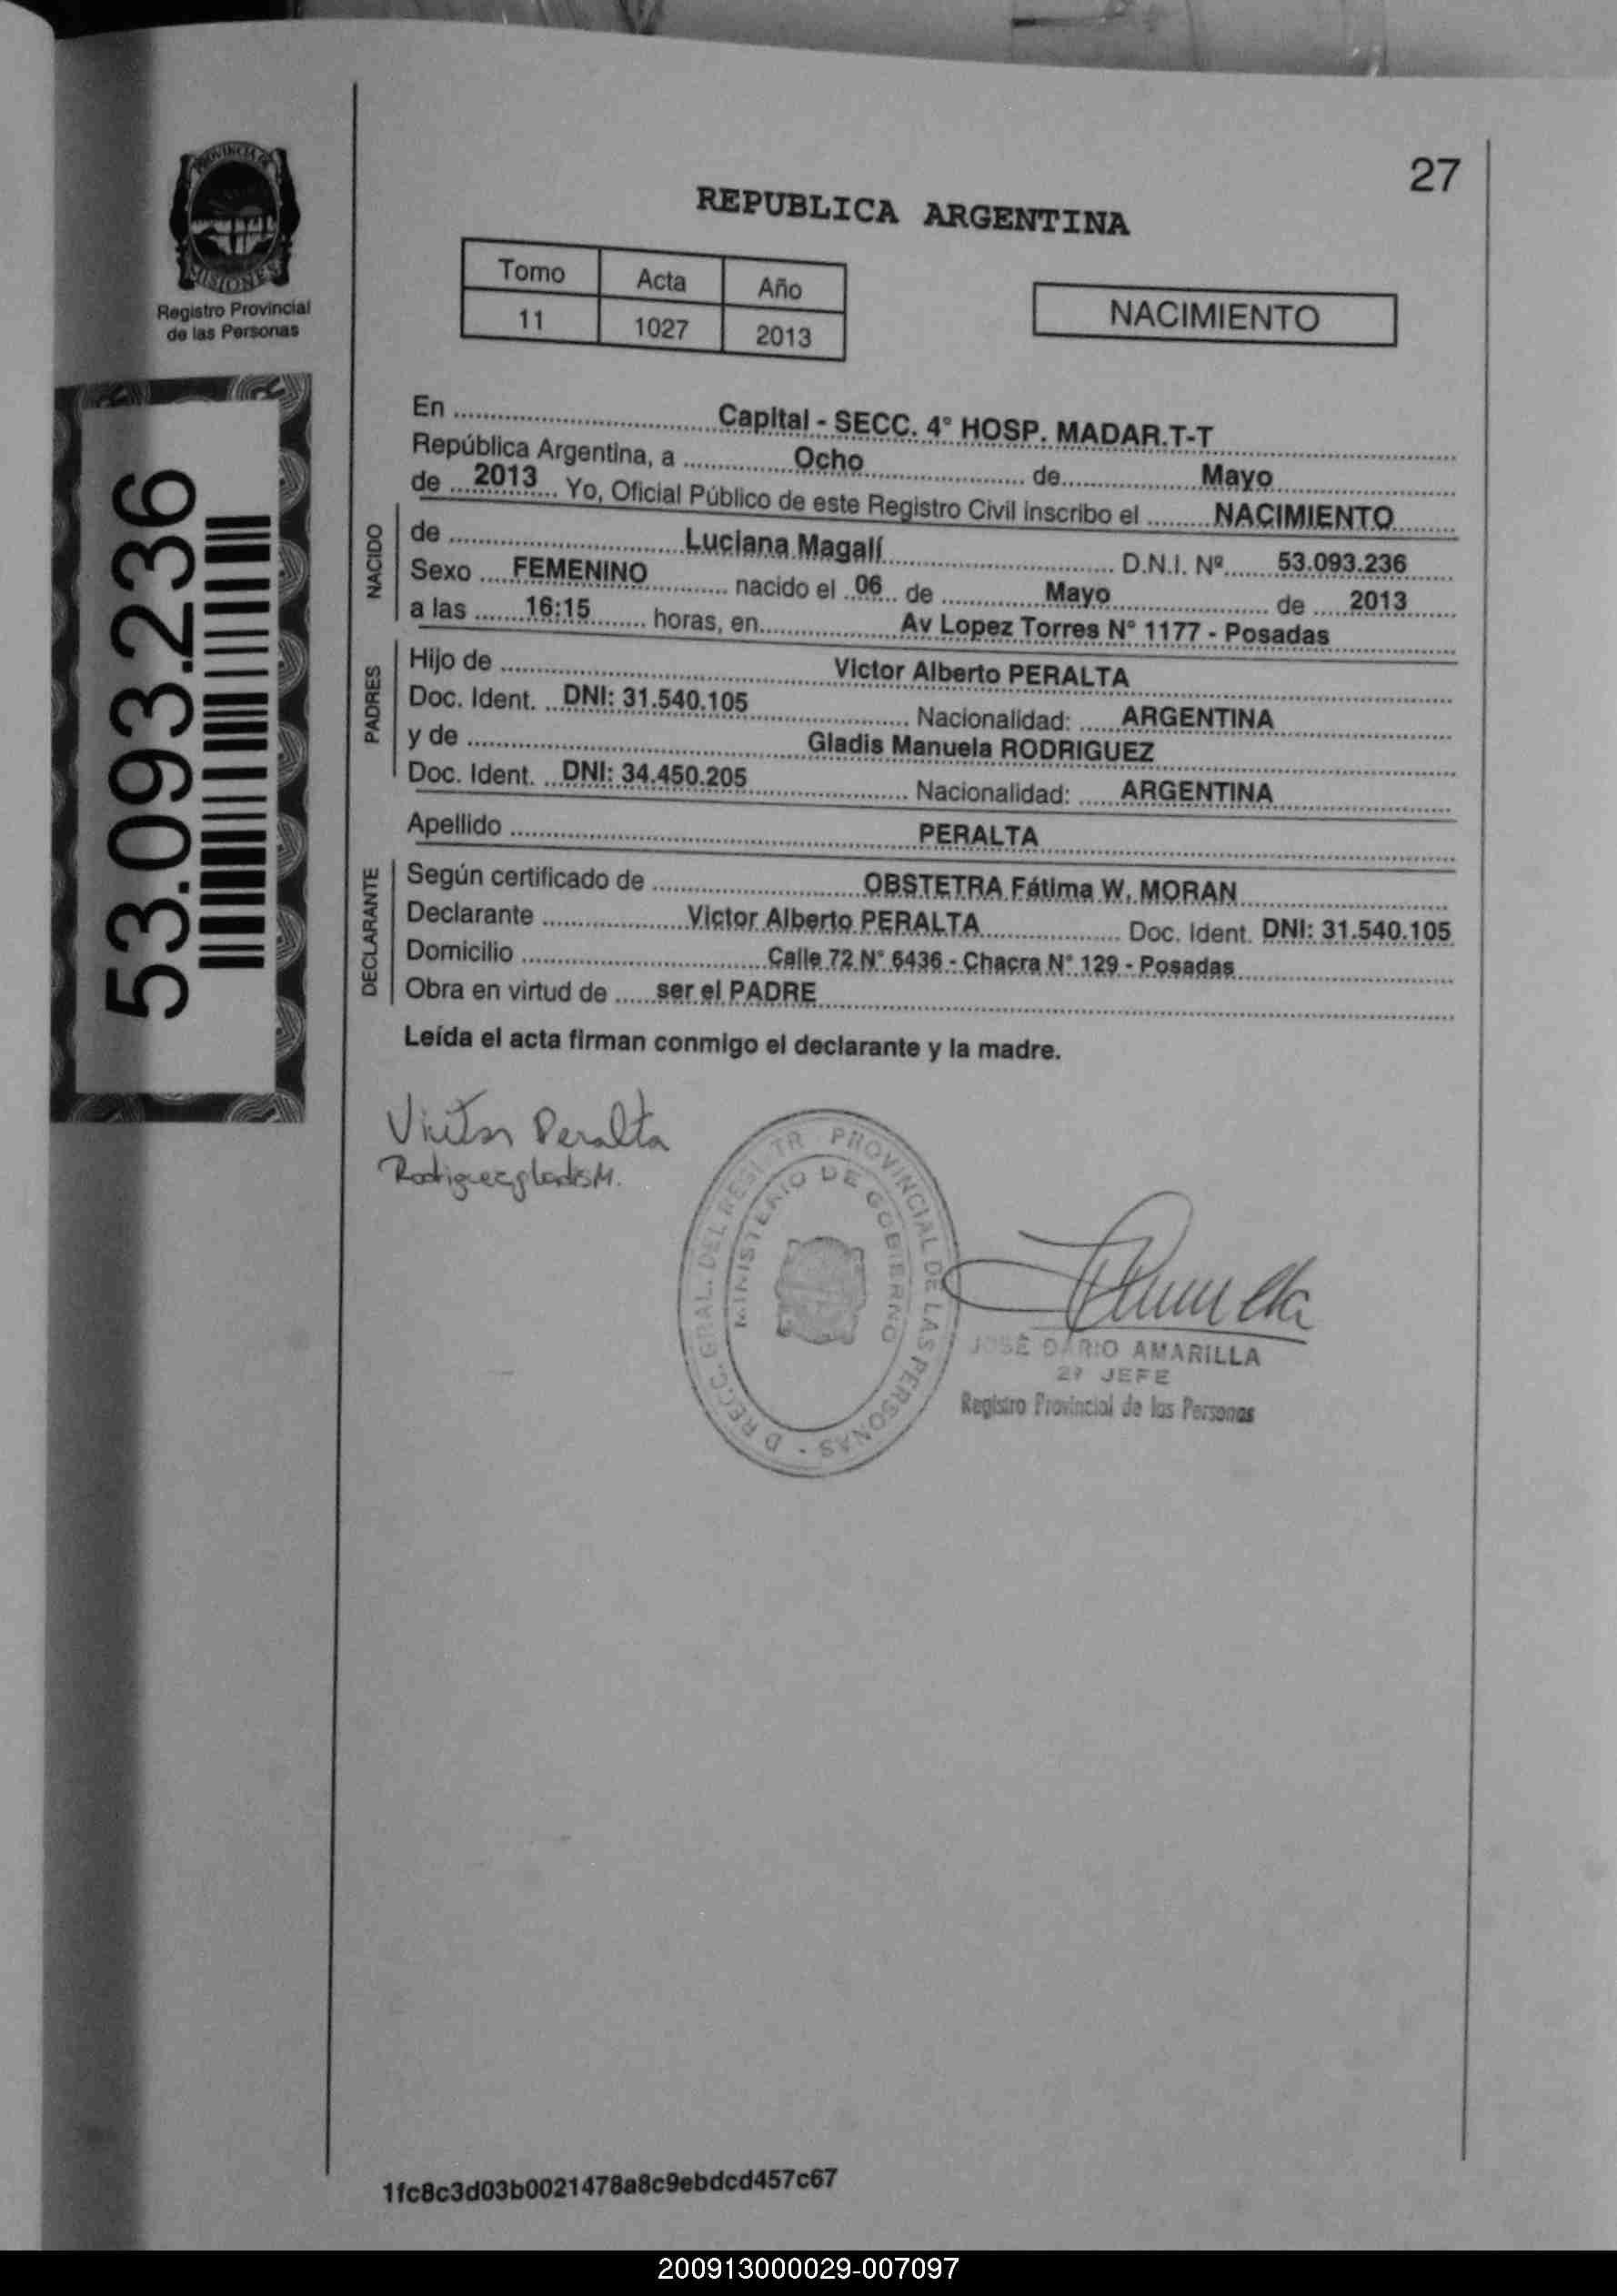 27
PROVINCIA DE
MISIONES
Registro Provincial
de las Personas
REPUBLICA ARGENTINA
Tomo Acta Año
11 1027 2013
NACIMIENTO
53.093.236
En Capital - SECC. 4° HOSP. MADAR.T-T
República Argentina, a Ocho de Mayo
de 2013 Yo, Oficial Público de este Registro Civil inscribo el NACIMIENTO
NACIDO
de Luciana Magalí D.N.I. Nº 53.093.236
Sexo FEMENINO nacido el 06 de Mayo de 2013
a las 16:15 horas, en Av Lopez Torres N° 1177 - Posadas
PADRES
Hijo de Victor Alberto PERALTA
Doc. Ident. DNI: 31.540.105 Nacionalidad: ARGENTINA
y de Gladis Manuela RODRIGUEZ
Doc. Ident. DNI: 34.450.205 Nacionalidad: ARGENTINA
Apellido PERALTA
DECLARANTE
Según certificado de OBSTETRA Fátima W. MORAN
Declarante Victor Alberto PERALTA Doc. Ident. DNI: 31.540.105
Domicilio Calle 72 N° 6436 - Chacra N° 129 - Posadas
Obra en virtud de ser el PADRE
Leída el acta firman conmigo el declarante y la madre.
Victor Peralta
Rodriguez gladis M.
PROVINCIAL DE LAS PERSONAS -
GRAL. DEL
MINISTERIO DE GOBIERNO
JOSE DARIO AMARILLA
2º JEFE
Registro Provincial de las Personas
1fc8c3d03b0021478a8c9ebdcd457c67
200913000029-007097